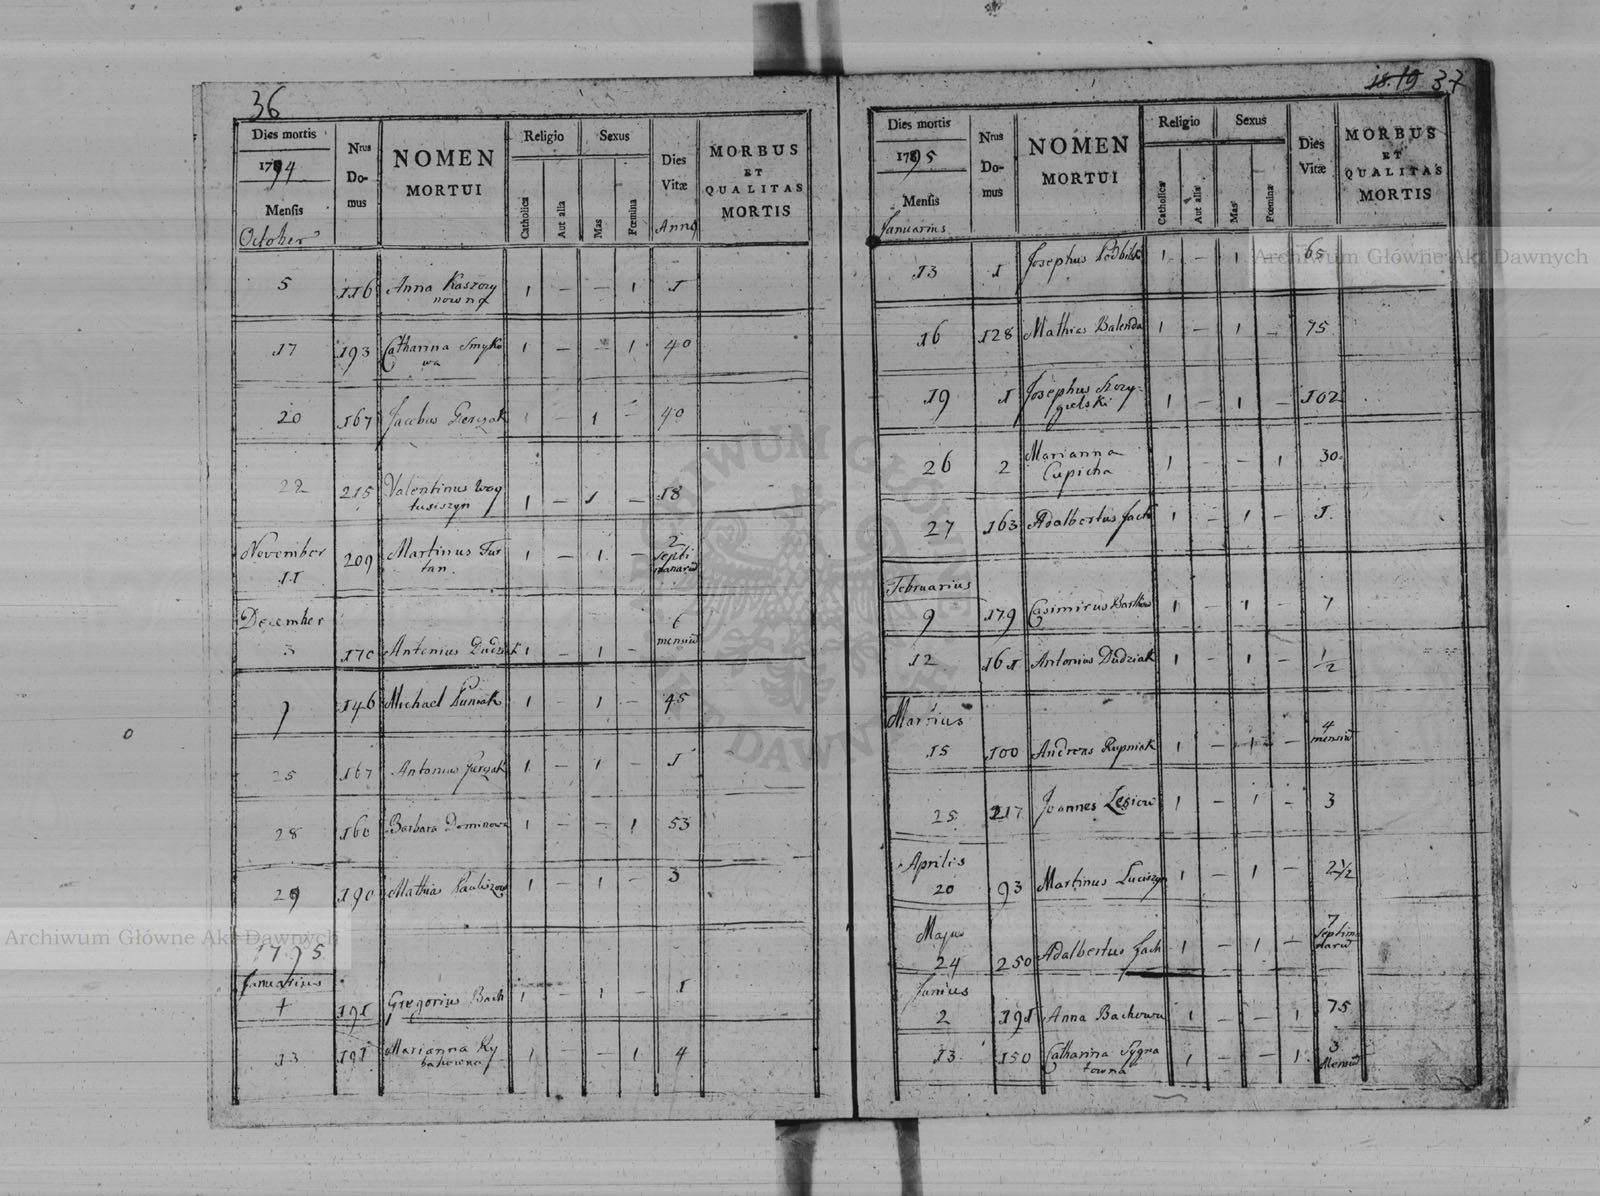 36
Dies mortis
1794
Mensis
October
Nrus
Do-
mus
NOMEN
MORTUI
Religio
Catholica
Aut alia
Sexus
Mas
Fœmina
Dies
Vitæ
Anno
MORBUS
ET
QUALITAS
MORTIS
5 116 Anna Kaszory 1 – – 1 1
nowna
17 193 Catharina Smyko 1 – – 1 40
wa
20 167 Jacobus Gierczak 1 – 1 – 40
22 215 Valentinus Woy 1 – 1 – 18
tusiszyn
November 2
11 209 Martinus Fur 1 – 1 – septi
tan. manarū
December 6
3 170 Antonius Dudziak 1 – 1 – mensiū
7 146 Michael Kuniak 1 – 1 – 45
25 167 Antonius 1 – 1 – 1
28 160 Barbara Dominowa 1 – – 1 53
29 190 Mathias 1 – 1 – 3
1795
Januarius
+ 191 Gregorius Bach 1 – 1 – 1
13 191 Marianna Ry 1 – – 1 4
bakowna
18.19 37
Dies mortis
1795
Mensis
Januarius
Nrus
Do-
mus
NOMEN
MORTUI
Religio
Catholica
Aut alia
Sexus
Mas
Fœmina
Dies
Vitæ
MORBUS
ET
QUALITAS
MORTIS
13 1 Josephus Podbilski 1 – 1 65
16 128 Mathias Balenda 1 – 1 – 75
19 1 Josephus Skrzy- 1 – 1 – 102
gielski
26 2 Marianna 1 – – 1 30
Cupicha
27 163 Adalbertus Jach 1 – 1 – 1
Februarius
9 179 Casimirus Bartkow 1 – 1 – 7
12 161 Antonius Dudziak 1 – 1 – 1/2
Martius 4
15 100 Andreas Rupniak 1 – 1 – mensiū
25 217 Joannes Lesiow 1 – 1 – 3
Aprilis
20 93 Martinus Luciszyn 1 – 1 – 2 1/2
Majus 7
24 250 Adalbertus Jach 1 – 1 – septima
narū
Junius
2 191 Anna Bachowa 1 – – 1 75
13 150 Catharina Sygna 1 – – 1 3
towna Mensiū
Archiwum Główne Akt Dawnych
Archiwum Główne Akt Dawnych
ARCHIWUM GŁÓWNE AKT DAWNYCH